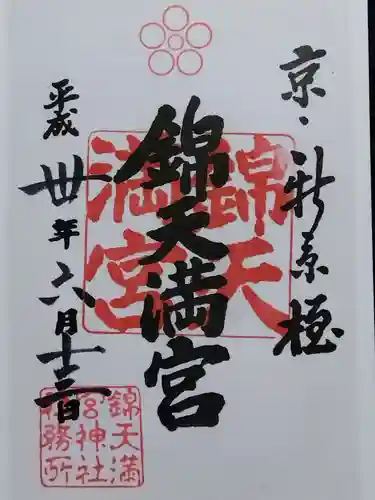 京・新京極
錦天満宮
平成卅年六月十三日
錦天
満宮
錦天満
宮神社
務所